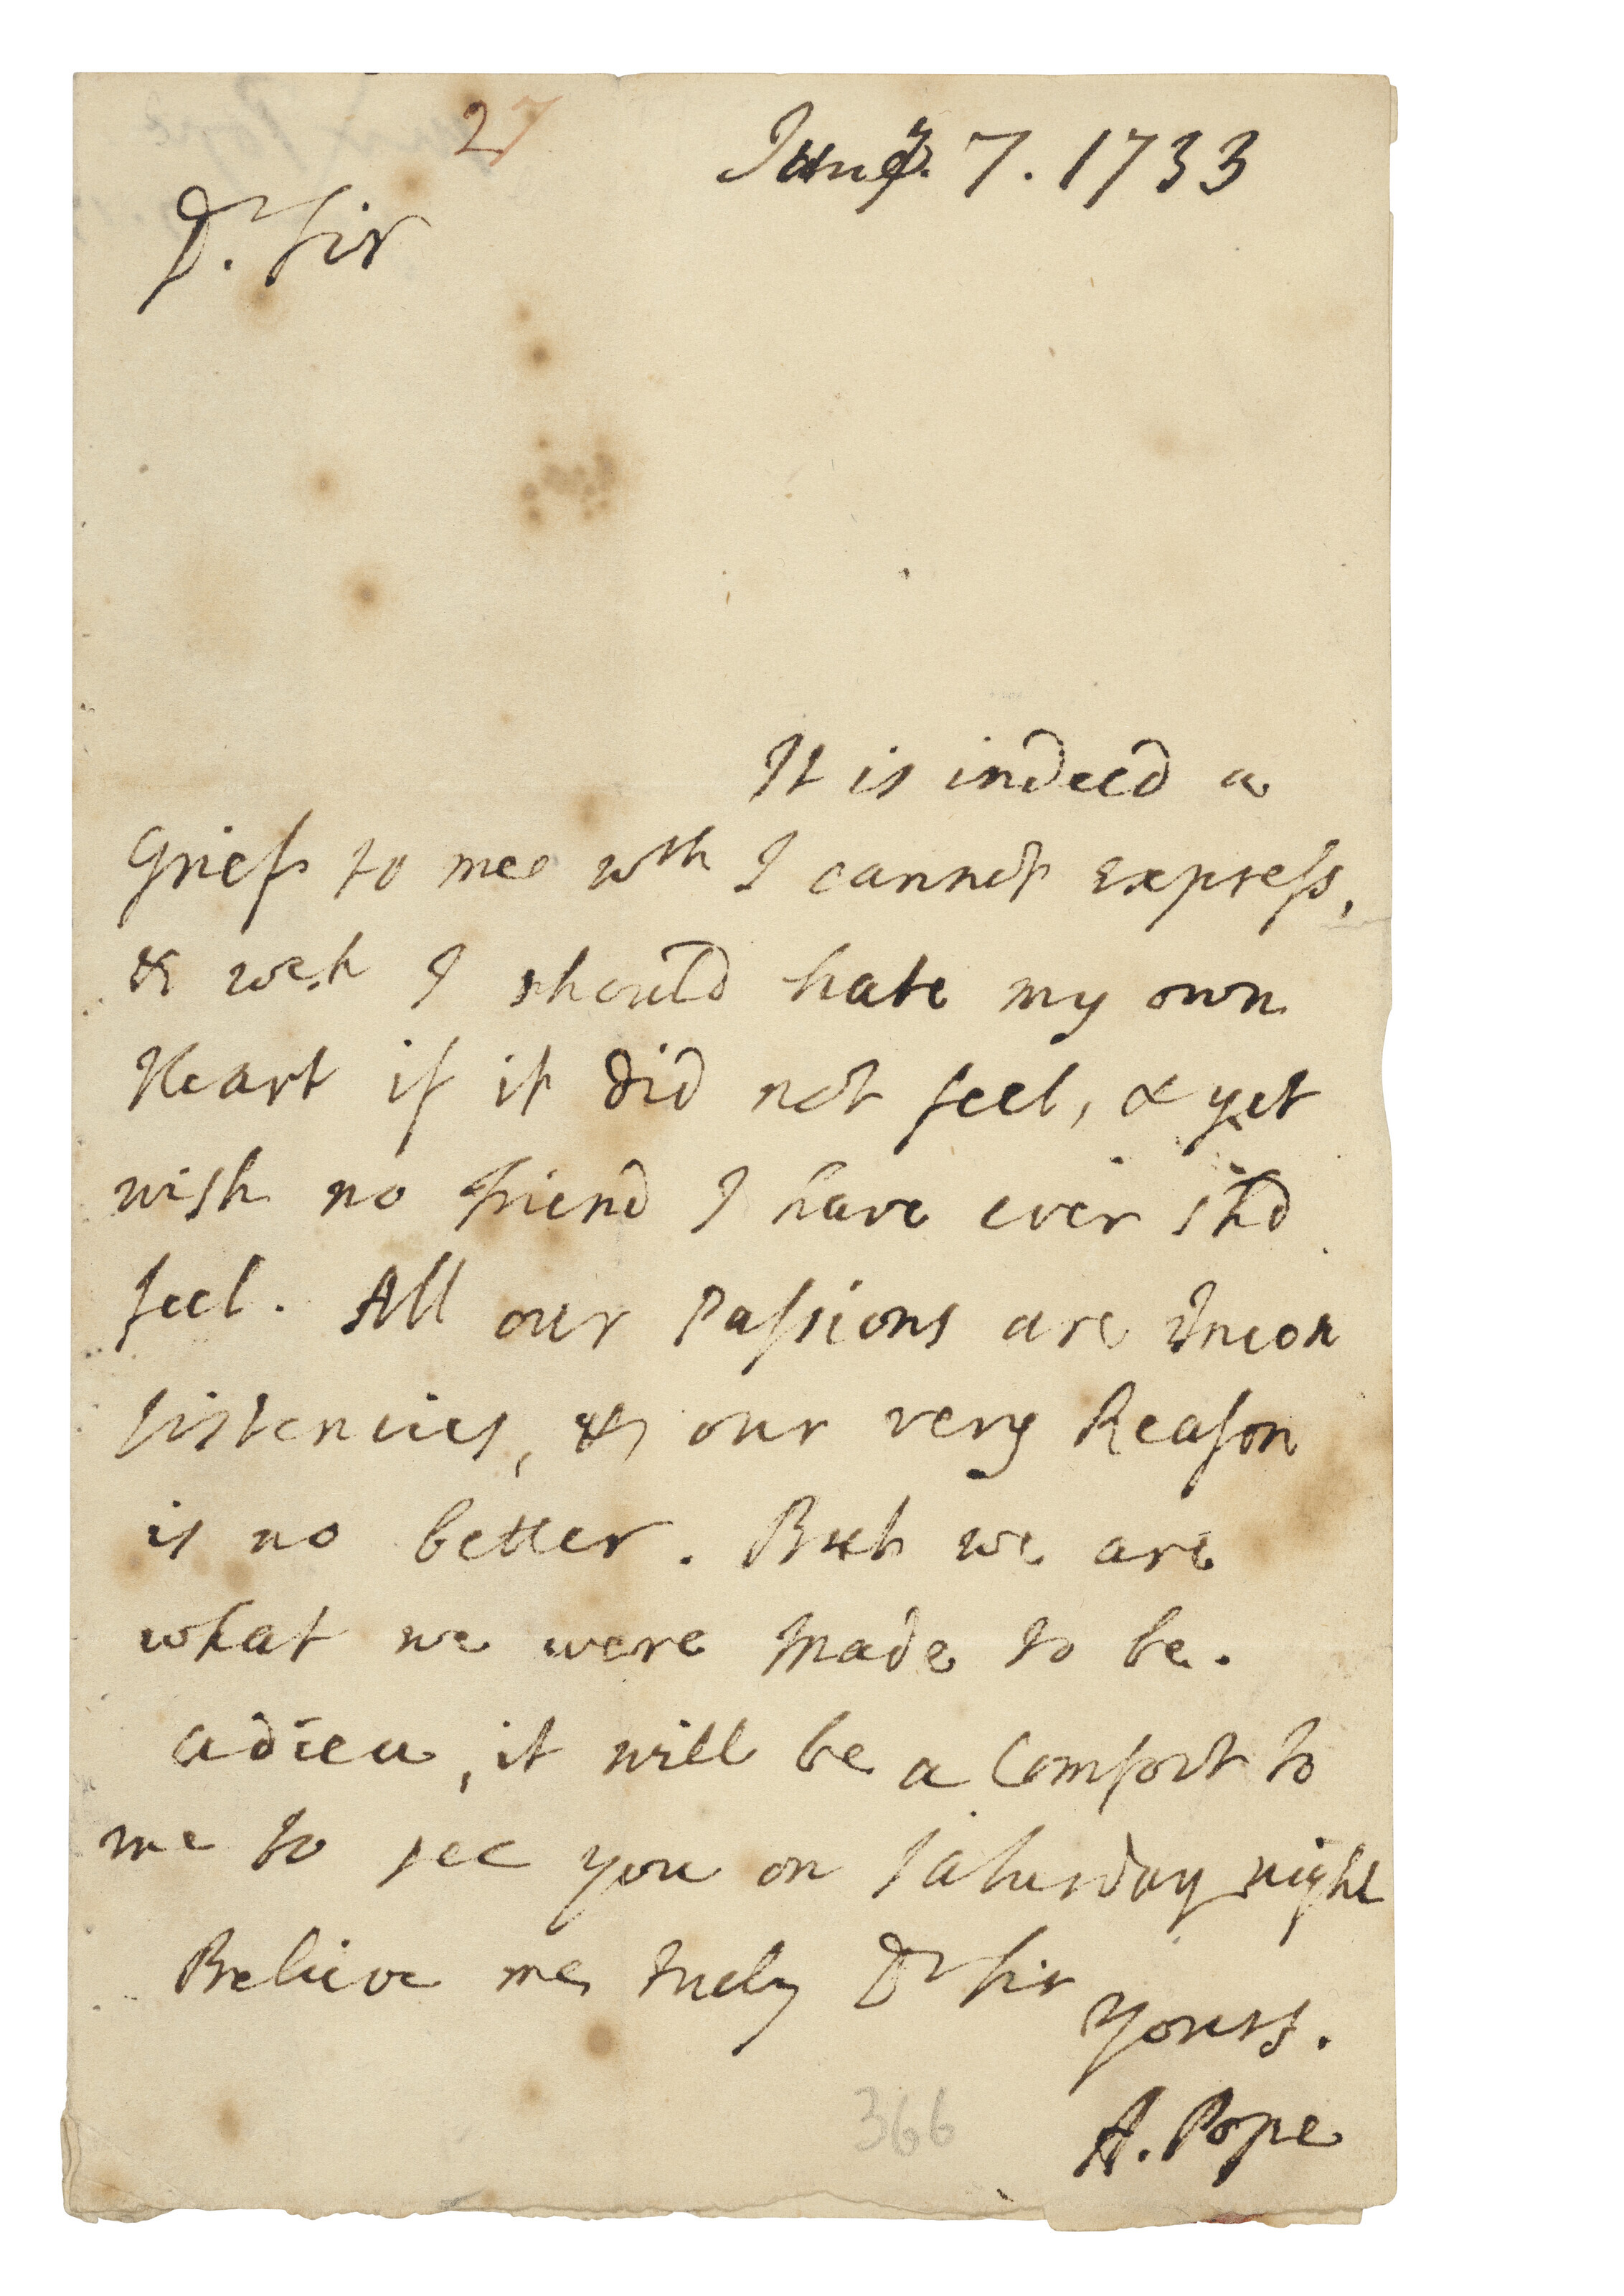 27
June 7. 1733
Dr. Sir
It is indeed a
Grief to mee wch I cannot express,
& wch I should hate my own
Heart if it did not feel, & yet
wish no friend I have ever shd
feel. All our Passions are Incon
sistencies, & our very Reason
is no better. But we are
what we were Made to be.
adieu, it will be a Comfort to
me to see you on Saturday night
Believe me truly Dr Sir
Yours.
A. Pope
366